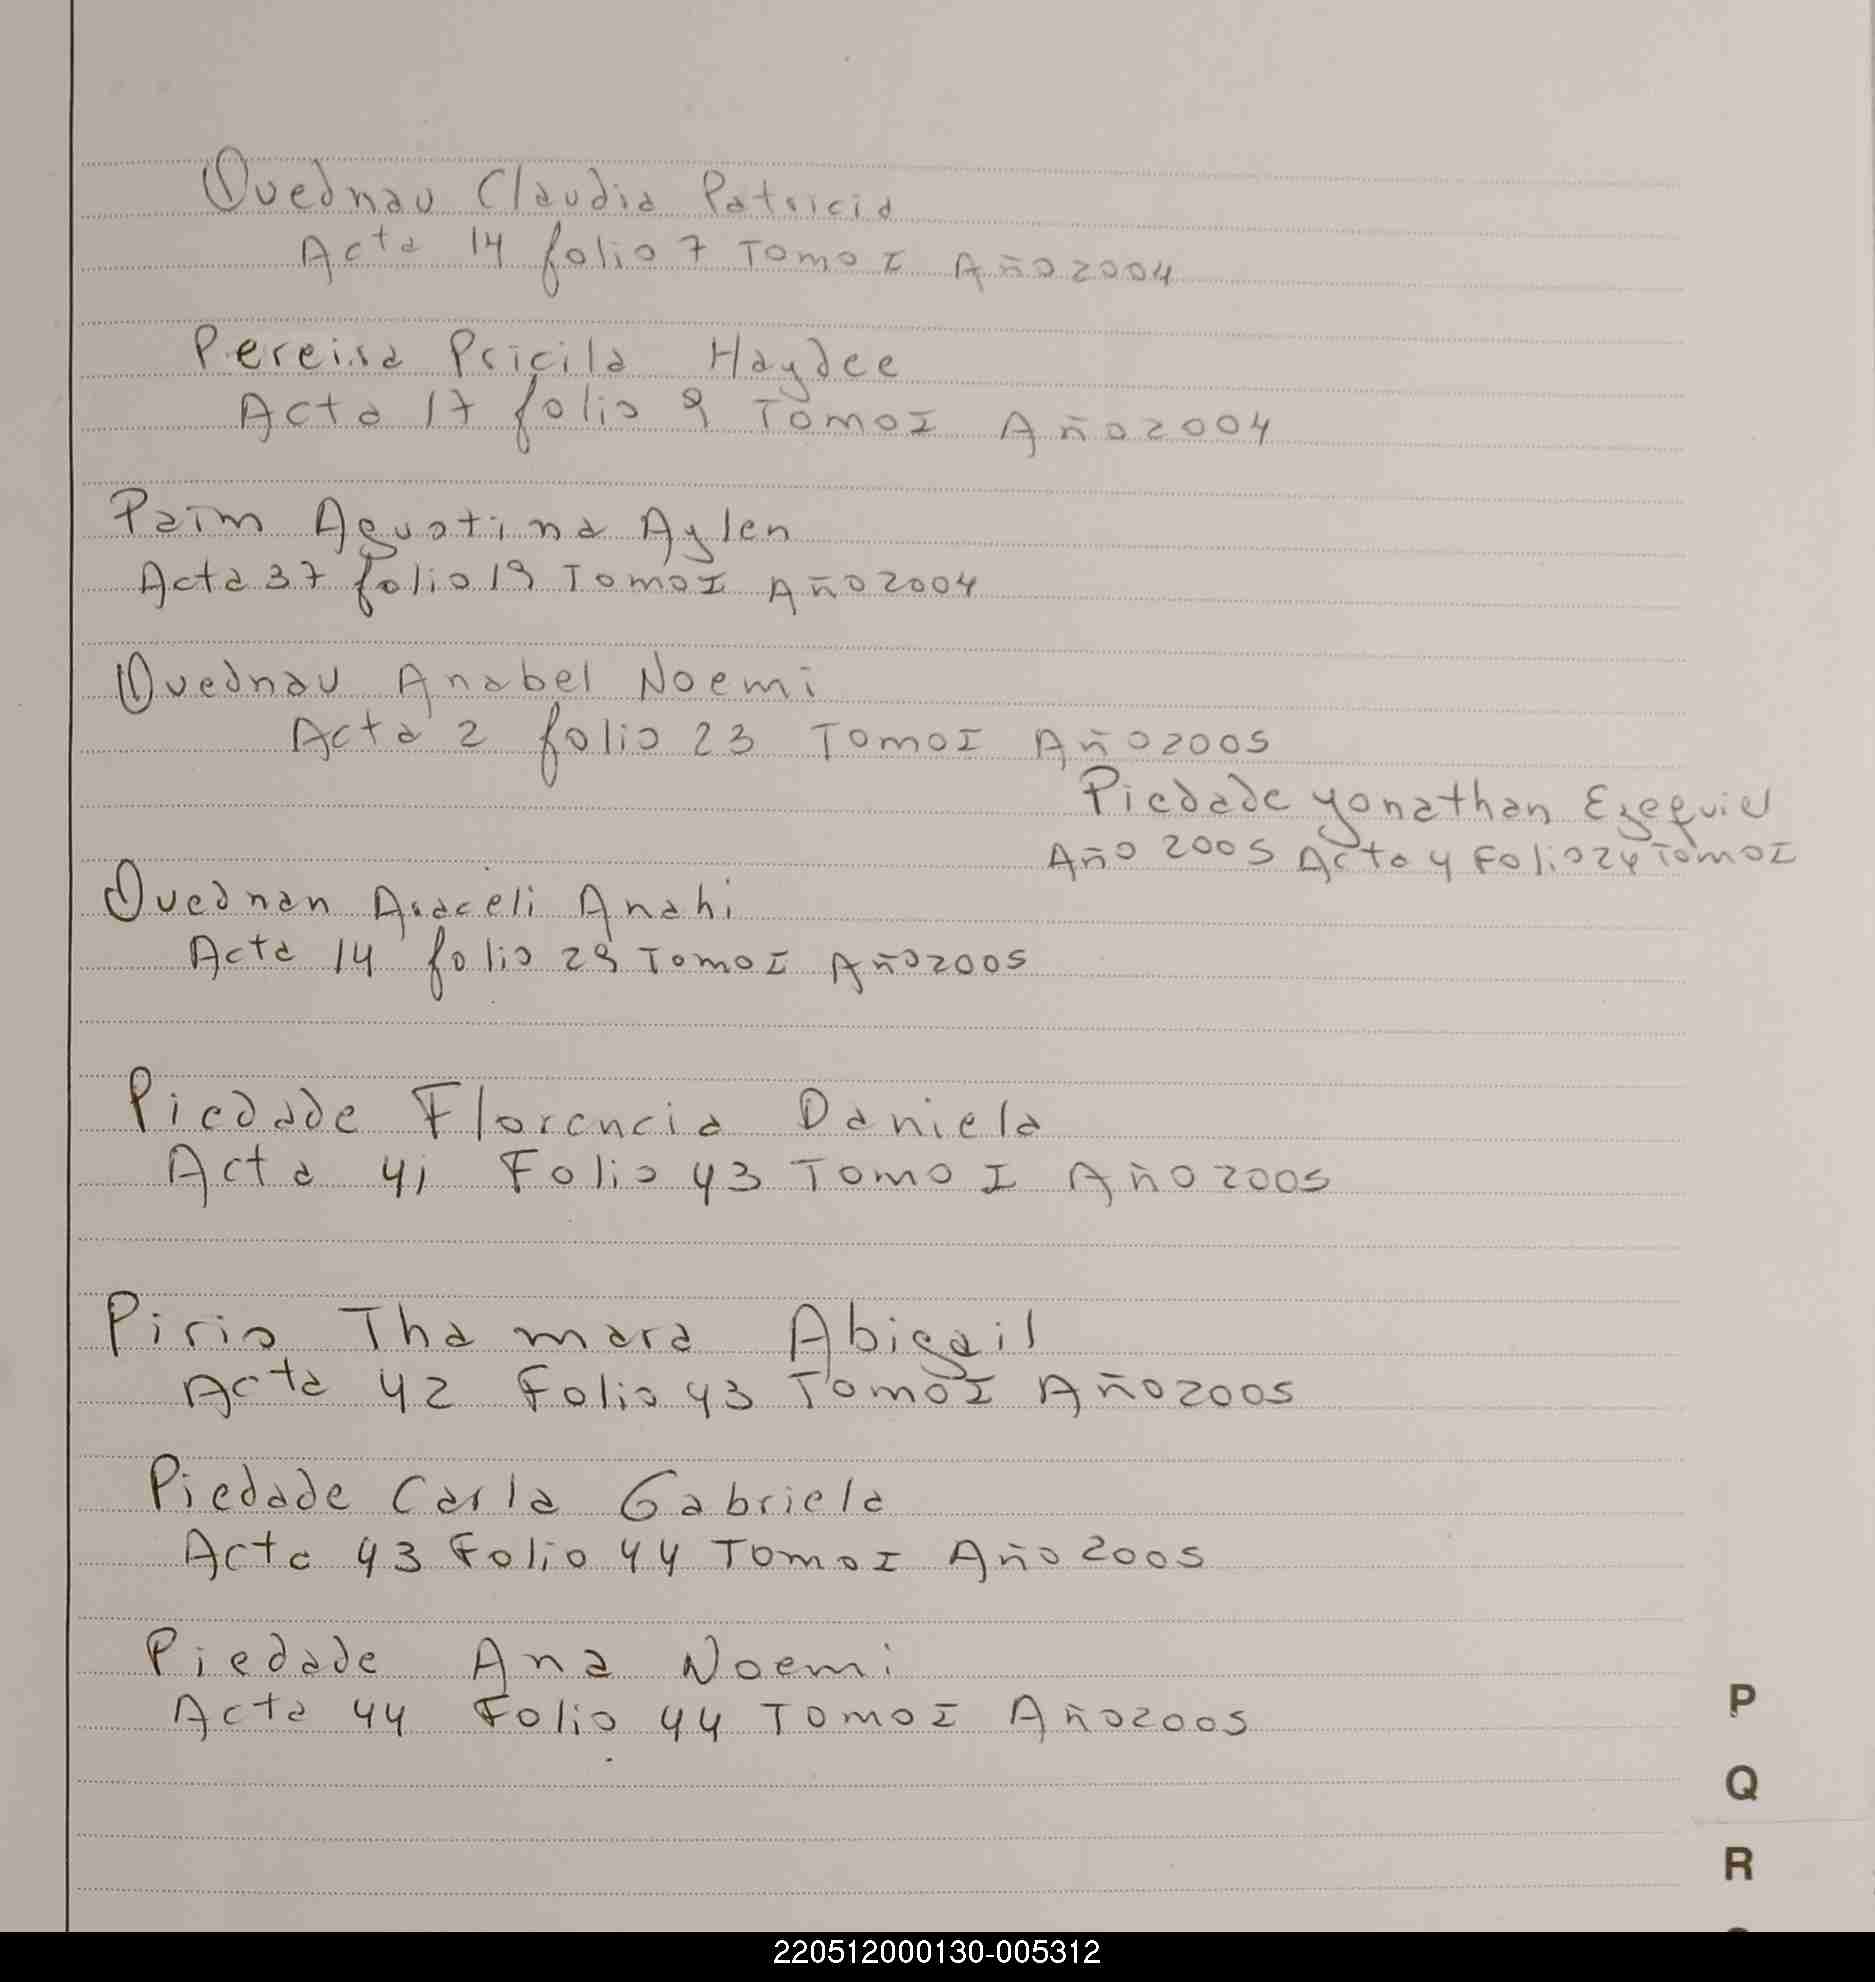 Quednau Claudia Patricia
Acta 14 folio 7 Tomo I Año 2004
Pereira Pricila Haydee
Acta 17 folio 9 Tomo I Año 2004
Paim Agustina Aylen
Acta 37 folio 19 Tomo I Año 2004
Quednau Anabel Noemi
Acta 2 folio 23 Tomo I Año 2005
Piedade Yonathan Ezequiel
Año 2005 Acta 4 Folio 24 Tomo I
Quednan Araceli Anahi
Acta 14 folio 29 Tomo I Año 2005
Piedade Florencia Daniela
Acta 41 Folio 43 Tomo I Año 2005
Piris Thamara Abigail
Acta 42 Folio 43 Tomo I Año 2005
Piedade Carla Gabriela
Acta 43 Folio 44 Tomo I Año 2005
Piedade Ana Noemi
Acta 44 Folio 44 Tomo I Año 2005
P
Q
R
220512000130-005312